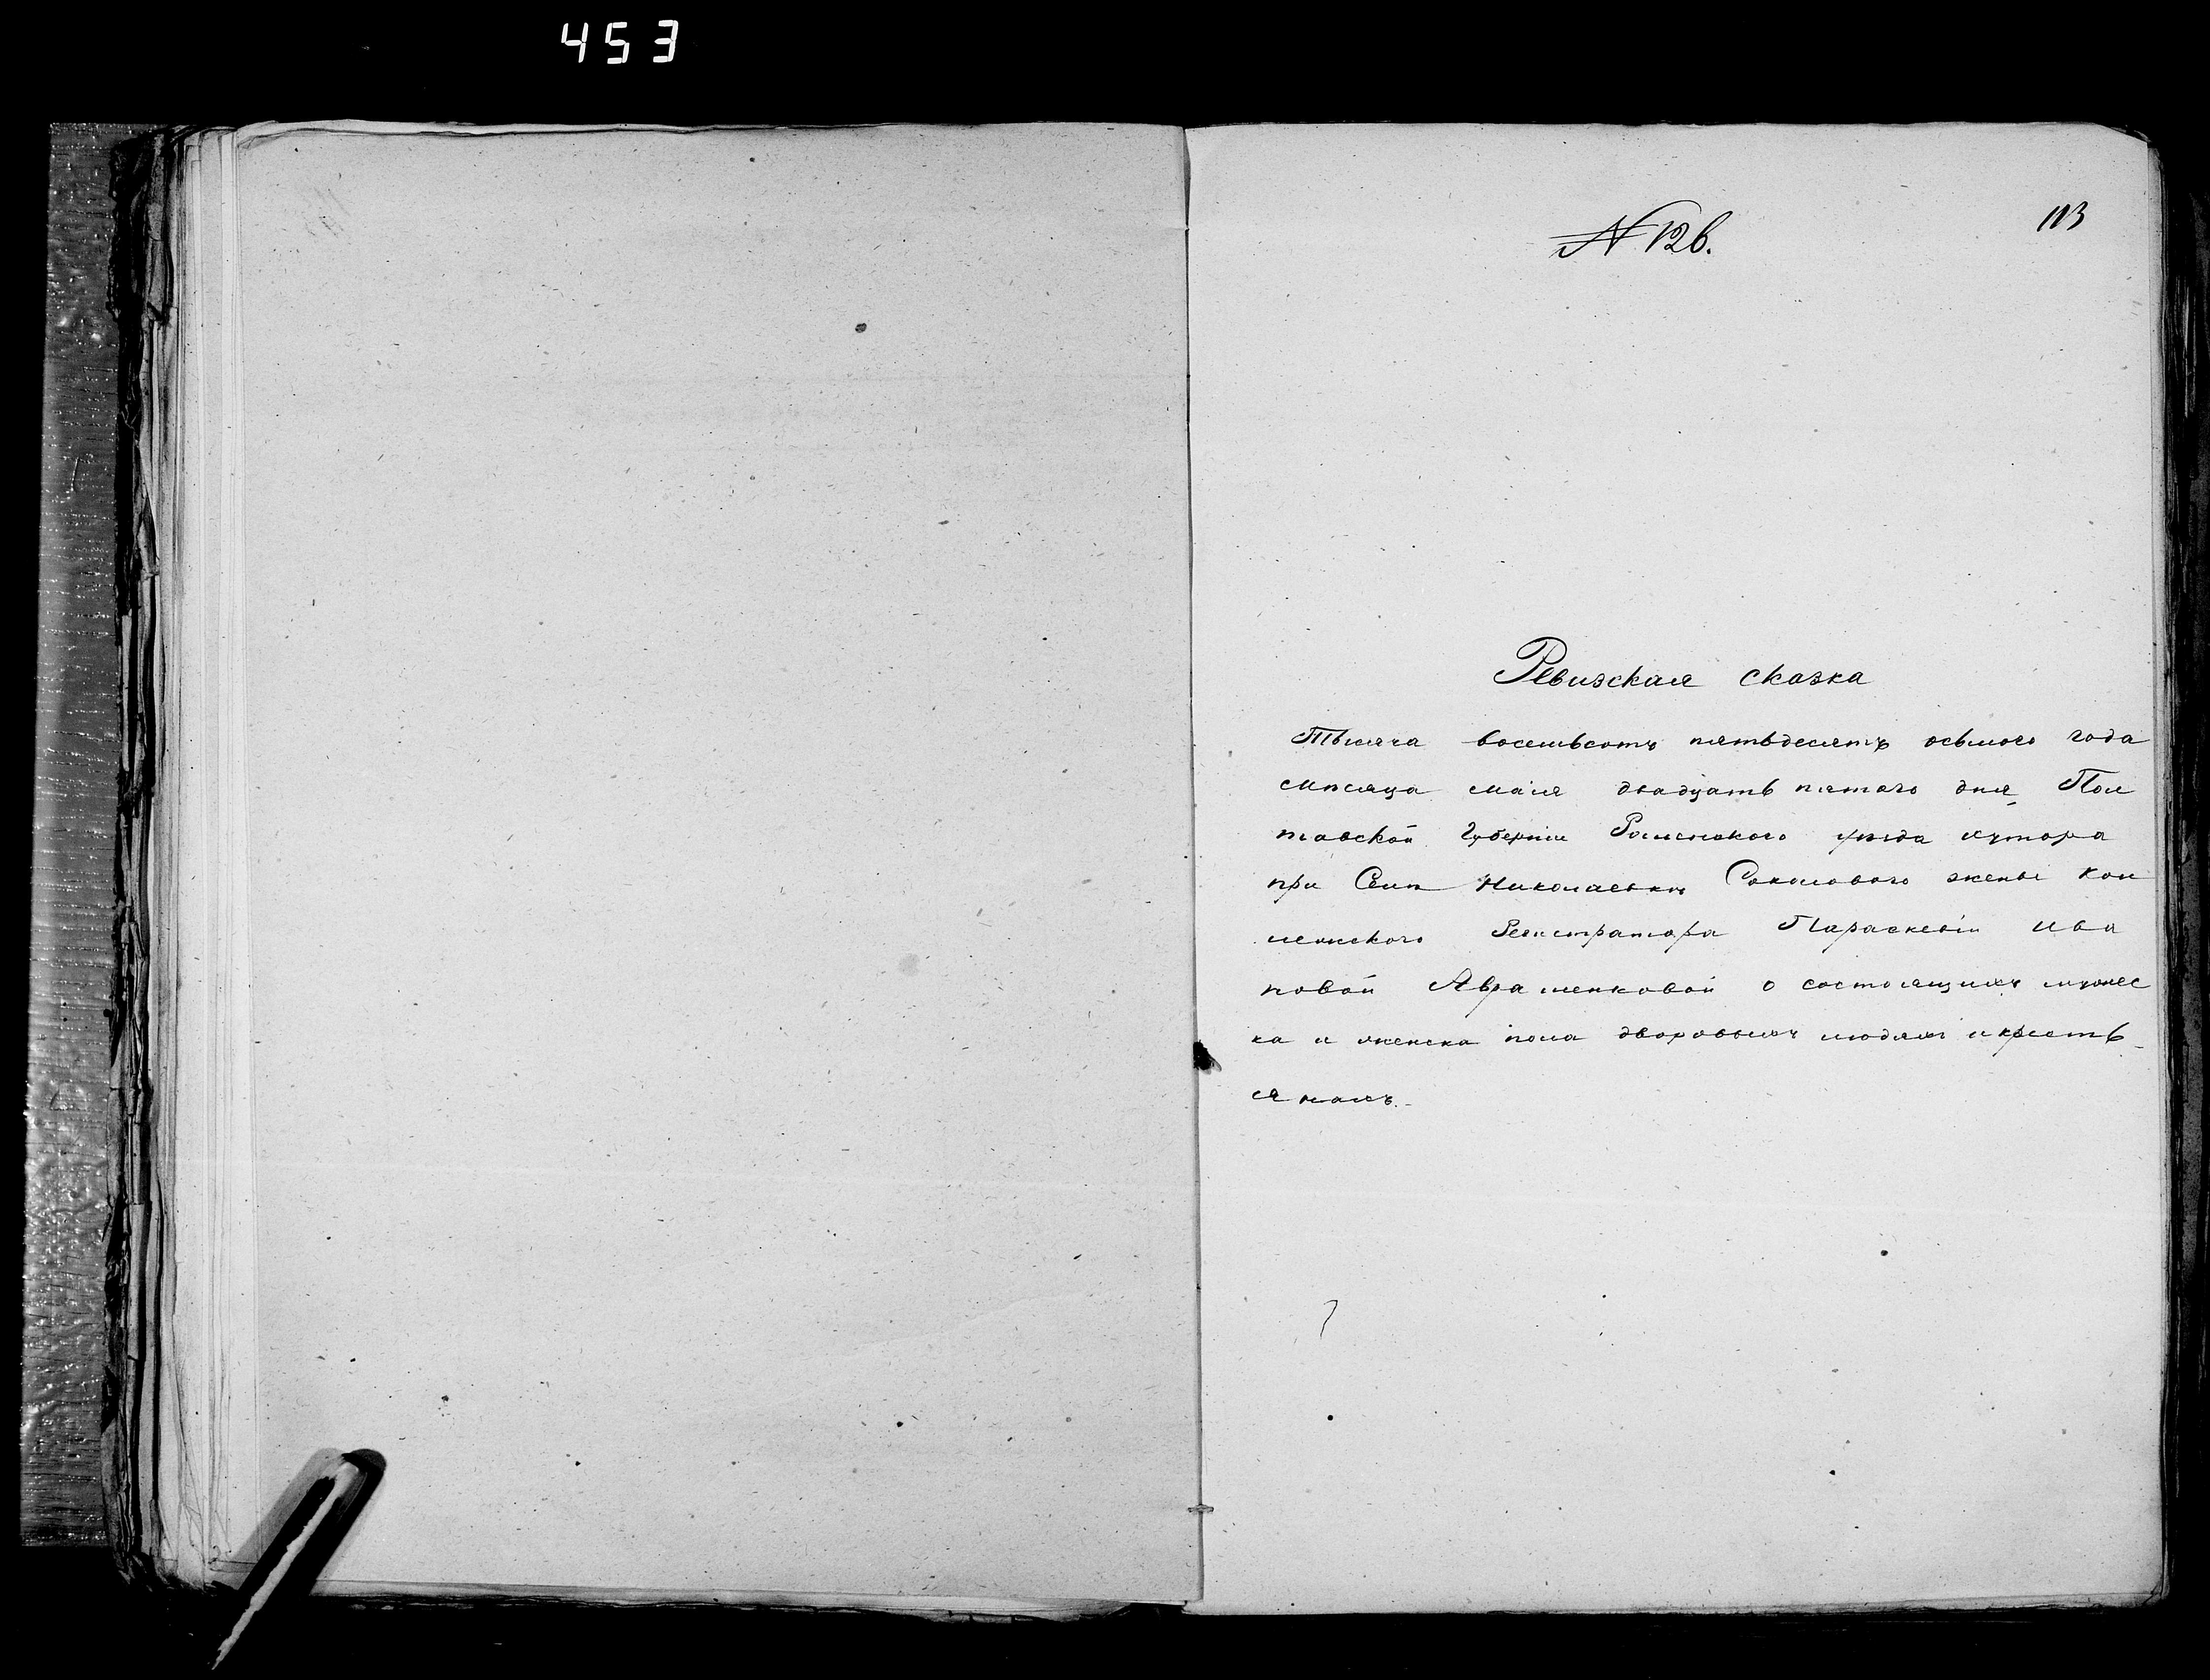 453
113
№ 126.
Ревизская сказка
Тысяча восемьсотъ пятьдесятъ осьмого года
мѣсяца маія двадцать пятого дня Пол
тавской Губерніи Роменского уѣзда хутора
при Селѣ Николаевкѣ Соколового жены Кол
лежского Регистратора Параскевіи Ива
новой Авраменковой о состоящихъ мужес
ка и женска пола дворовыхъ людяхъ и кресть
янахъ.